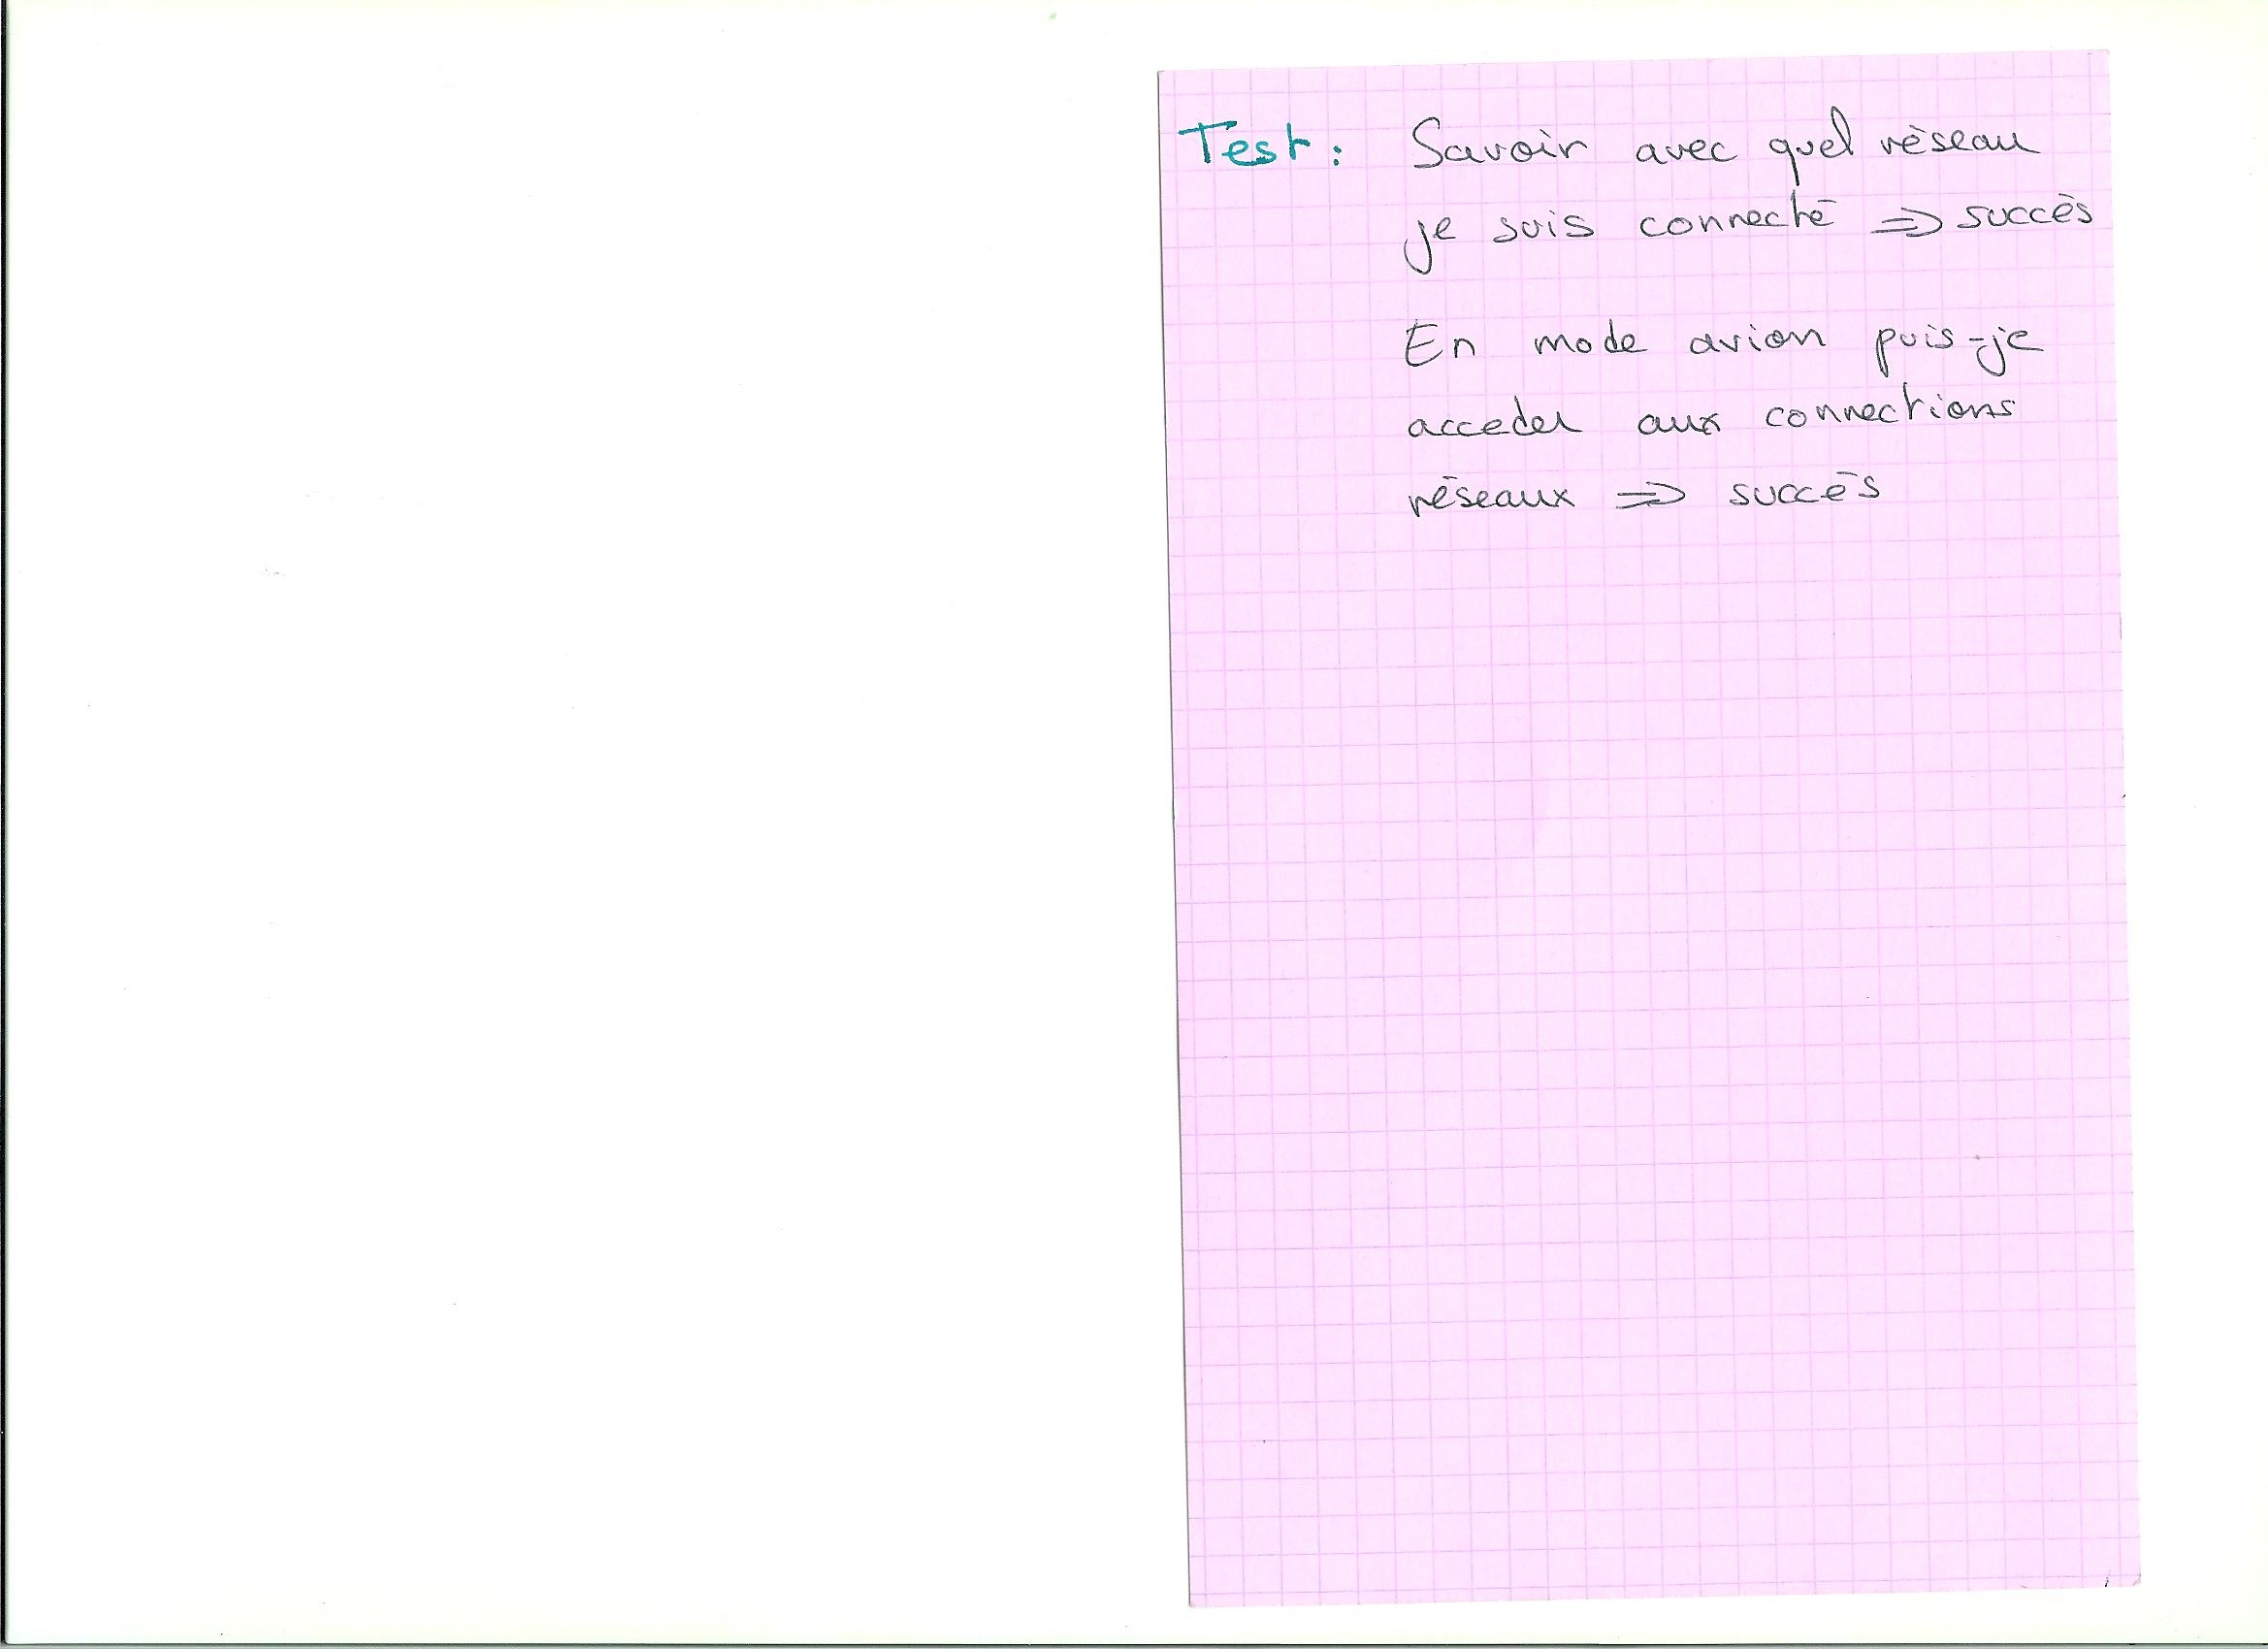 Test : Savoir avec quel réseau
je suis connecté => succès
En mode avion puis-je
acceder aux connections
réseaux => succès